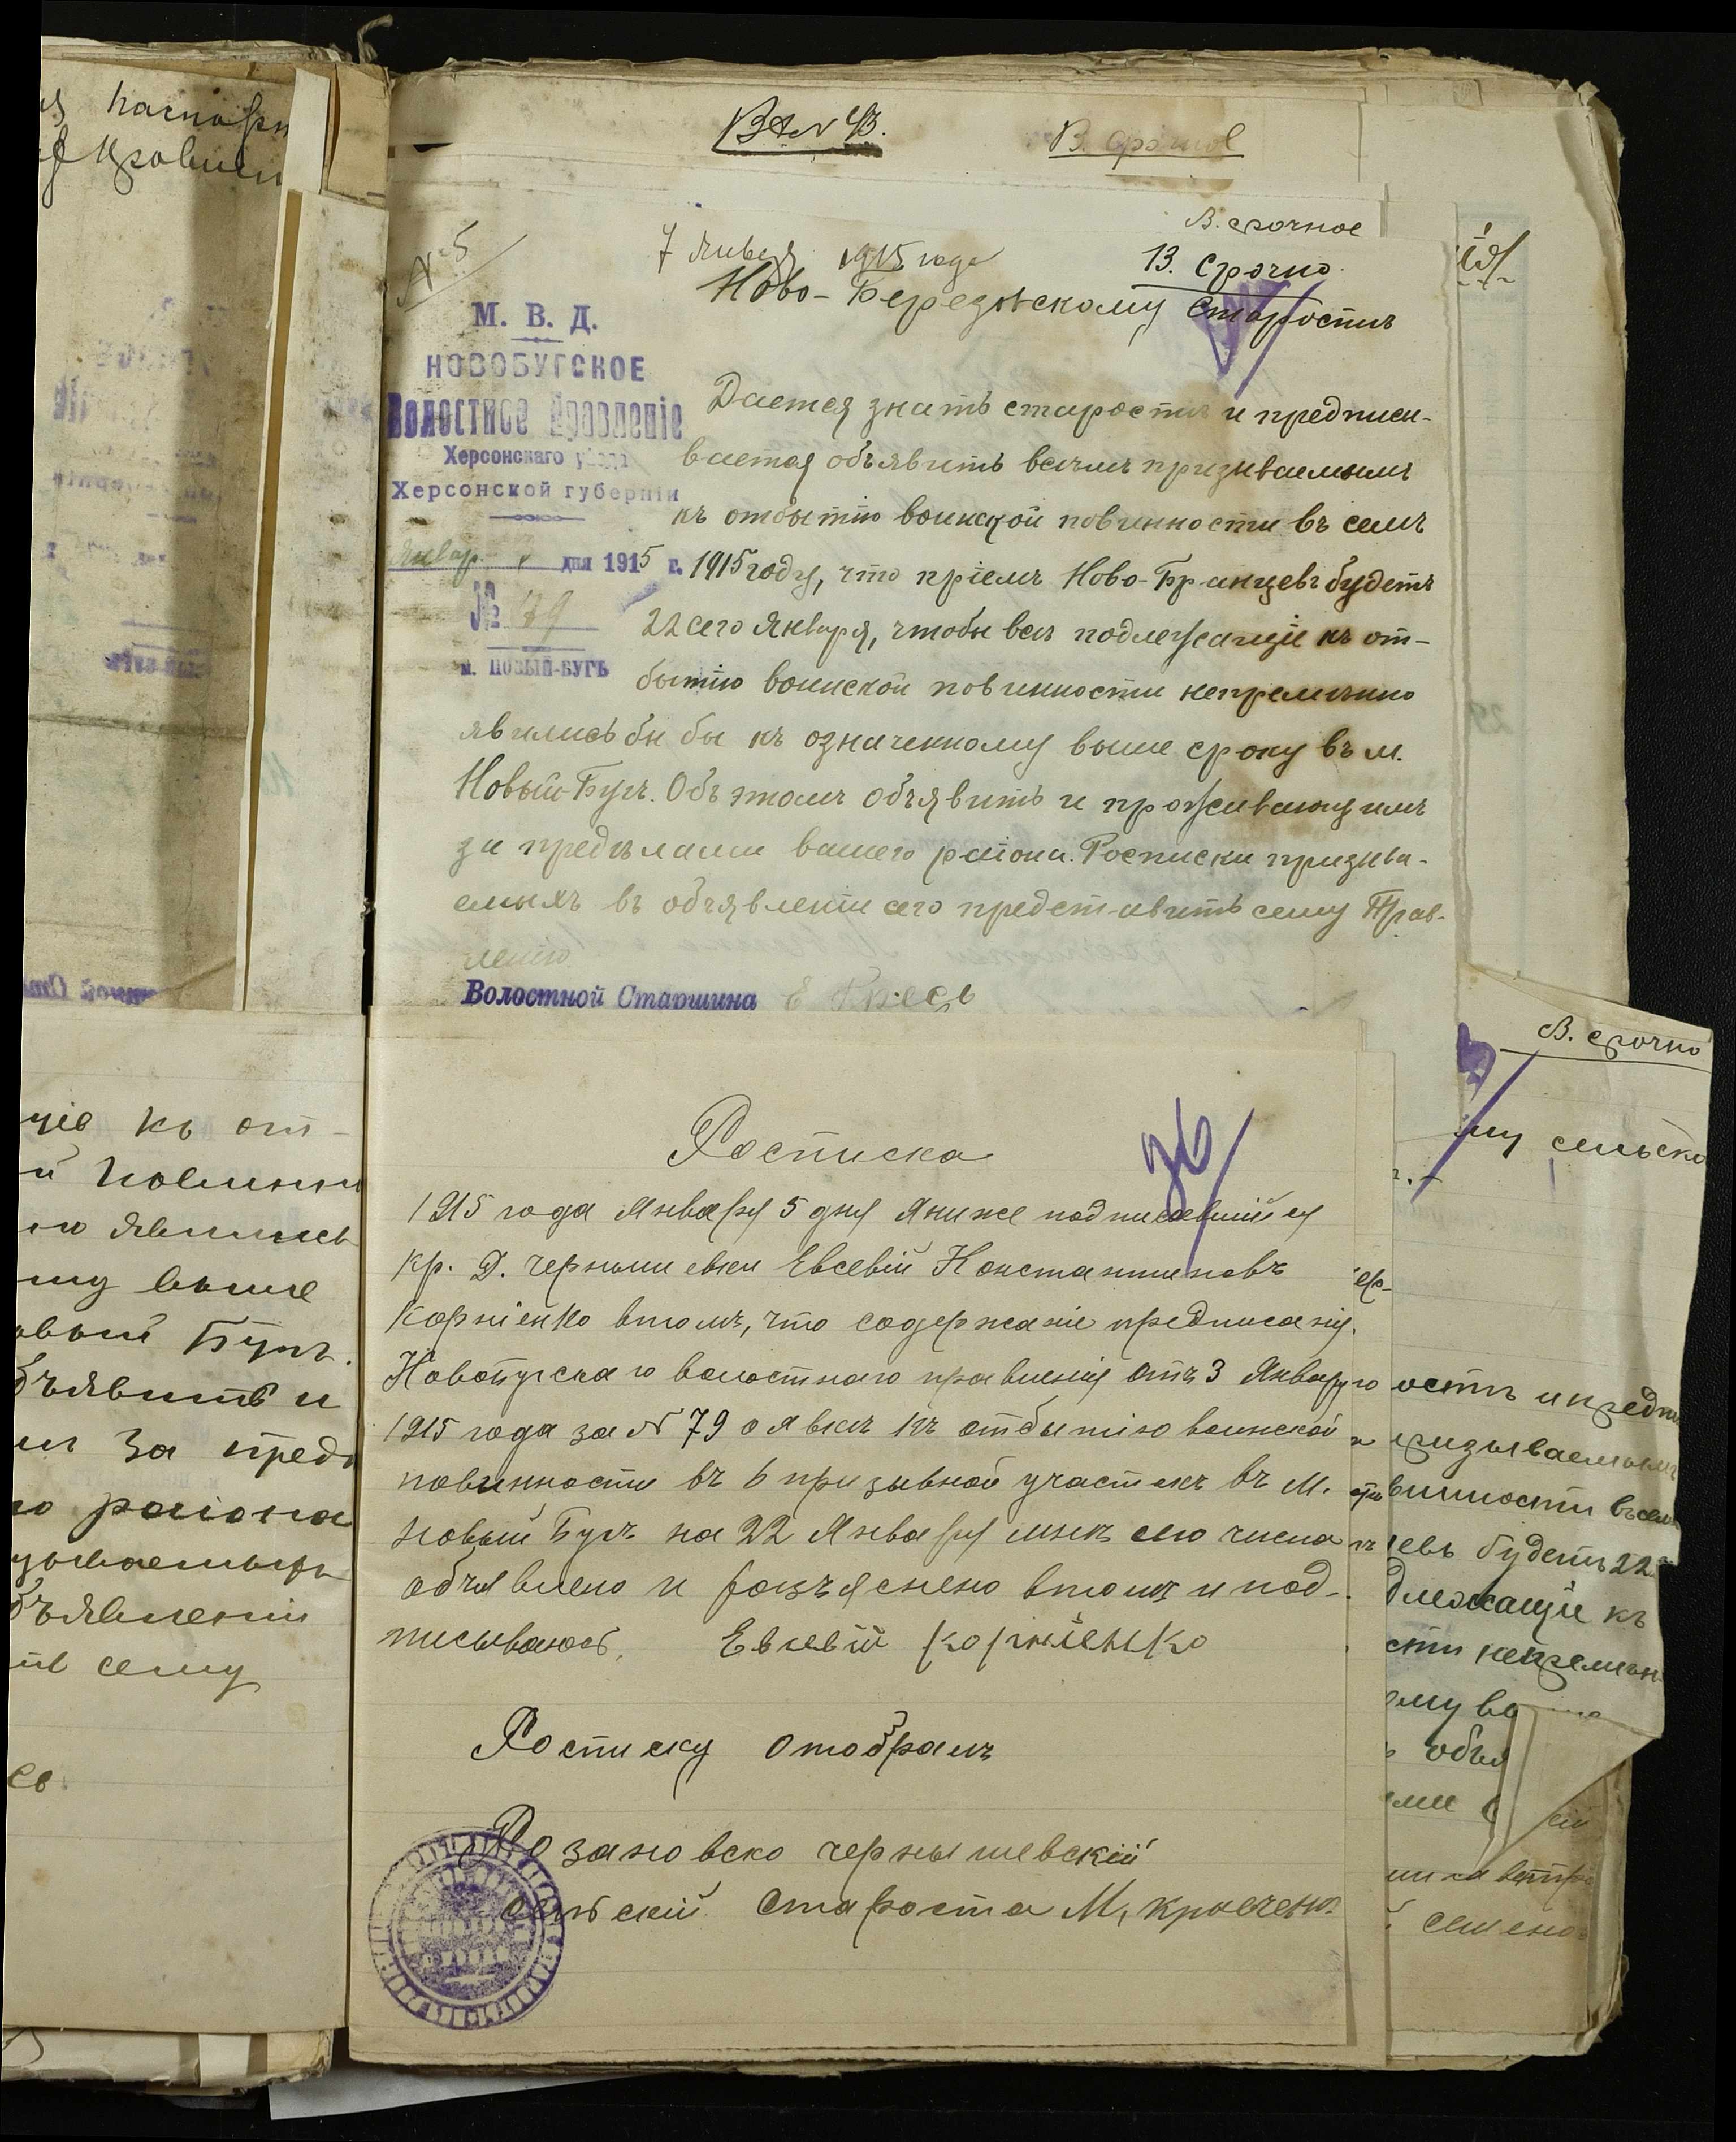 В. срочное
№ 5
7 Января 1915 года
В. Срочно
Ново-Березовскому Старостѣ
М. В. Д.
НОВОБУГСКОЕ
Волостное Правленіе
Херсонскаго уѣзда
Херсонской губерніи
Январ. дня 1915 г.
№ 79
м. НОВЫЙ-БУГЪ
Дается знать старостѣ и предписы-
вается объявить всѣмъ призываемымъ
къ отбытію воинской повинности въ семъ
1915 году, что пріемъ Ново-Бранцевъ будетъ
22 сего Января, чтобы всѣ подлежащіе къ от-
бытію воинской повинности непремѣнно
явились бы бы къ означенному выше сроку въ м.
Новый-Бугъ. Объ этомъ объявить и проживающимъ
за предѣлами вашего района. Росписки призыва-
емыхъ въ объявленіи сего представить сему Прав-
ленію
Волостной Старшина
Росписка
36
1915 года Января 5 дня Я ниже подписавшійся
кр. Д. Чернышевки Евсевій Константиновъ
Корніенко втомъ, что содержаніе предписанія
Новобугскаго волостнаго правленія отъ 3 Января
1915 года за № 79 о явкѣ къ отбытію воинской
повинности въ 6 призывной участокъ въ М.
Новый Бугъ на 22 Января мнѣ сего числа
объявлено и разъяснено втомъ и под-
писываюсь, Евсевій Корніенко
Росписку отобралъ
Розановско чернышевскій
сельскій Староста М.
паспорт
къ от-
явились
выше
овый Бугъ.
бъявить и
за пред
района
бъявленіи
сему
В. срочно
сельско
ость и предпи
призываемымъ
винности въ семъ
евъ будетъ 22
длежащіе къ
сти непремѣн